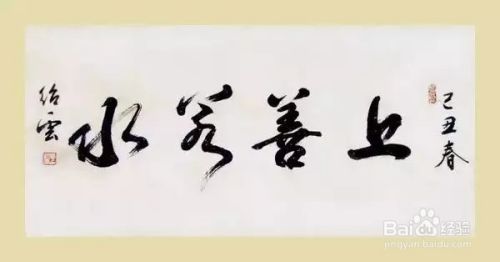 己丑春
上善若水
绍雲
Baidu经验
jingyan.baidu.com